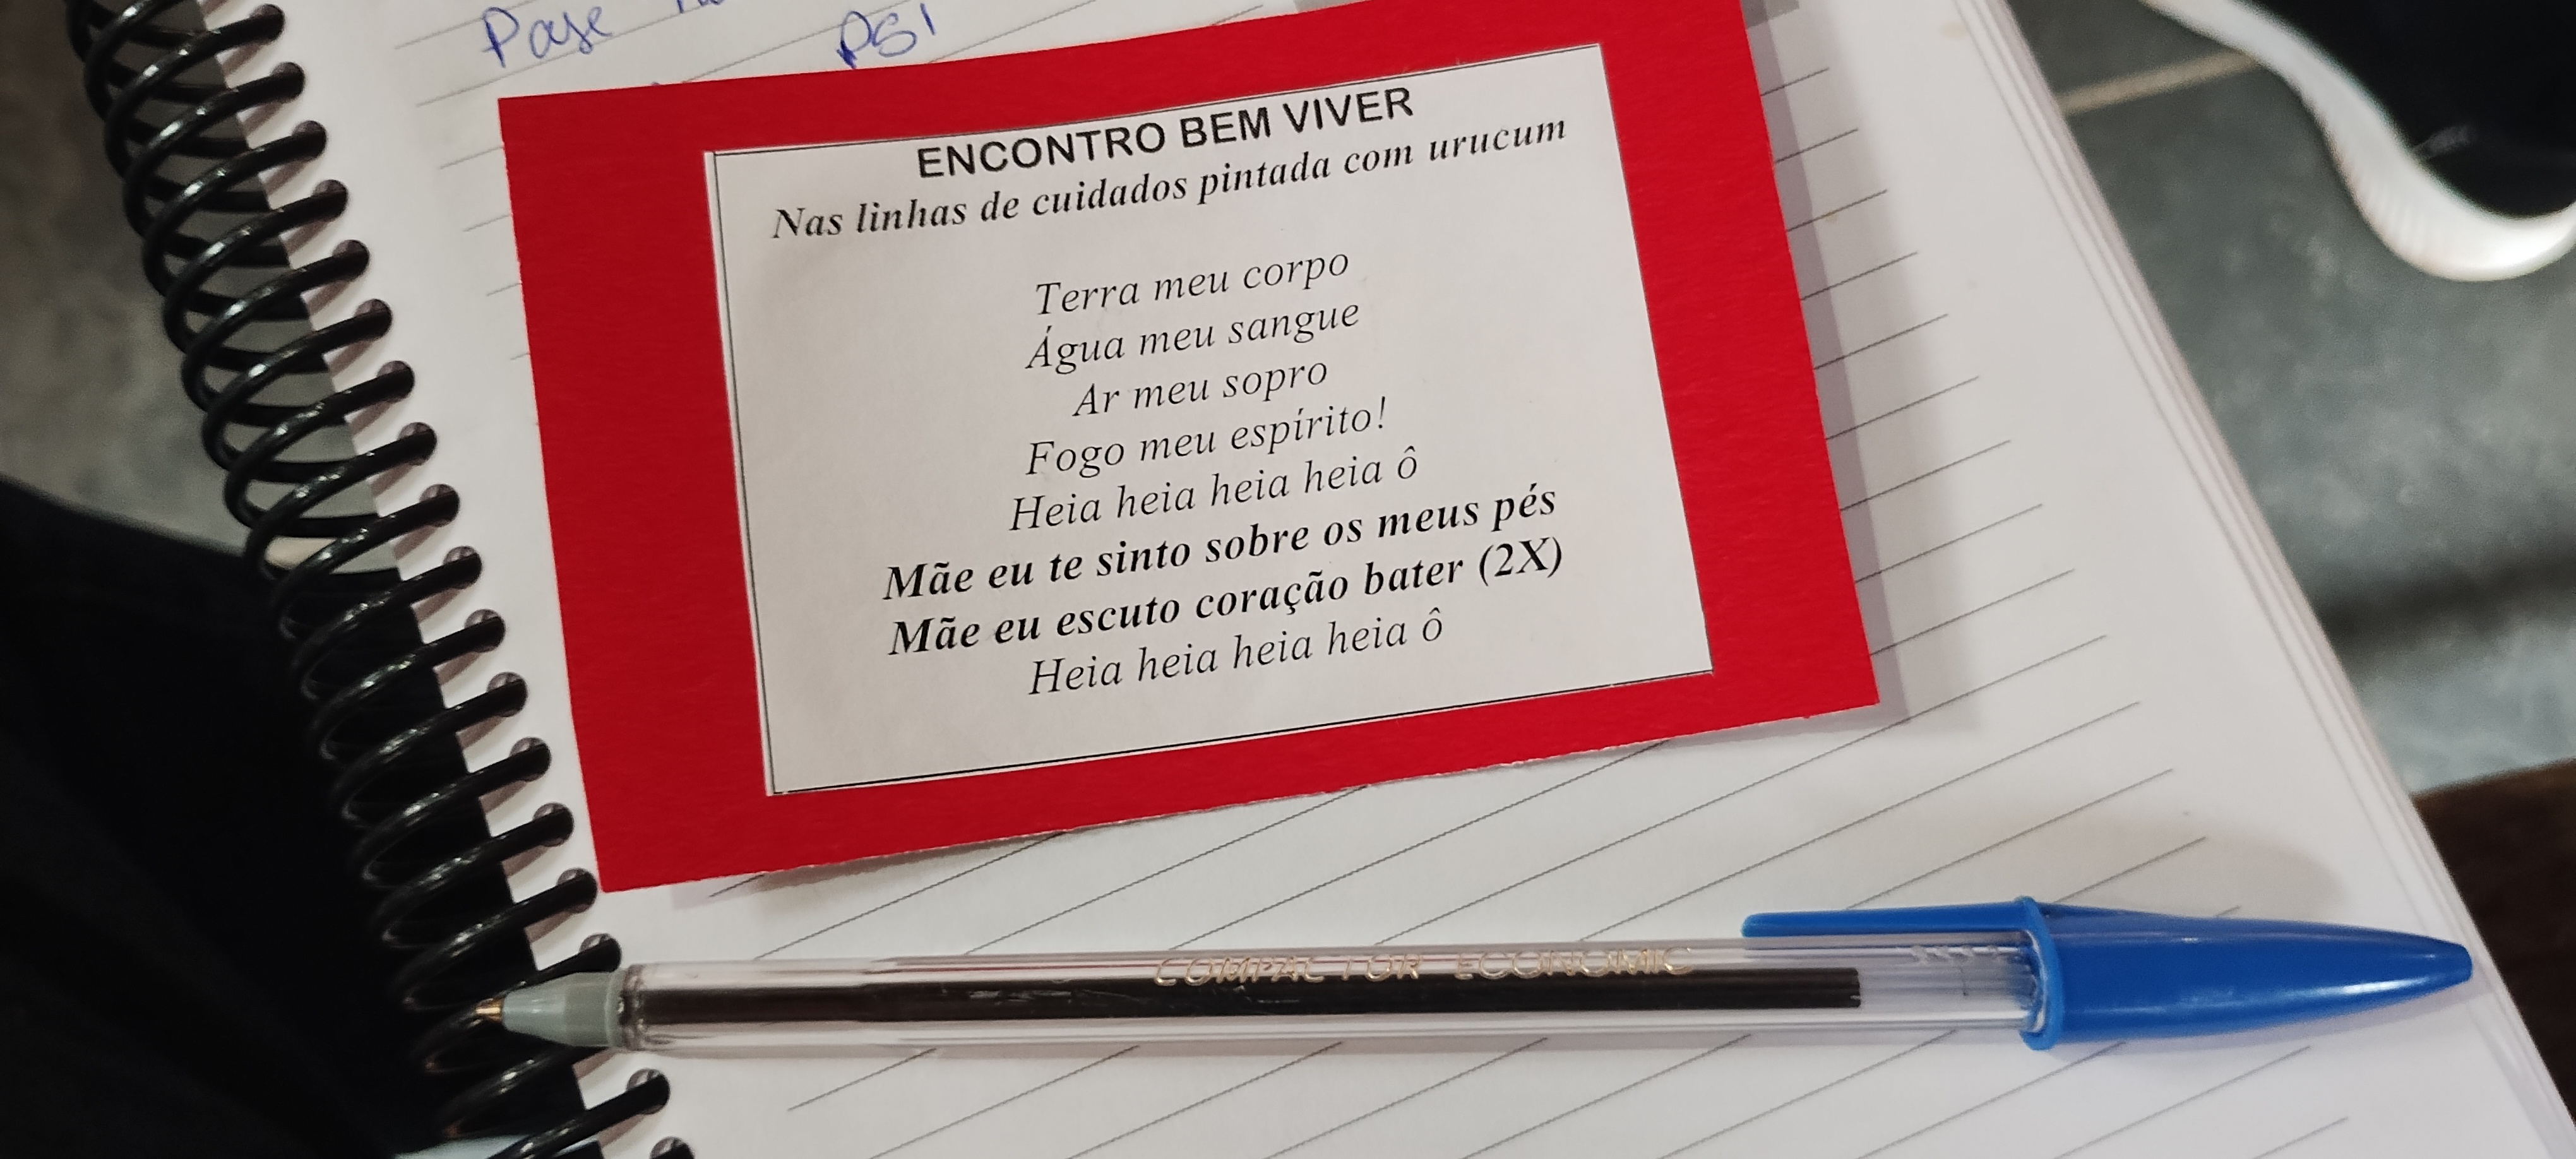 Pase
PSI
ENCONTRO BEM VIVER
Nas linhas de cuidados pintada com urucum
Terra meu corpo
Água meu sangue
Ar meu sopro
Fogo meu espírito!
Heia heia heia heia ô
Mãe eu te sinto sobre os meus pés
Mãe eu escuto coração bater (2X)
Heia heia heia heia ô
COMPACTOR ECONOMIC